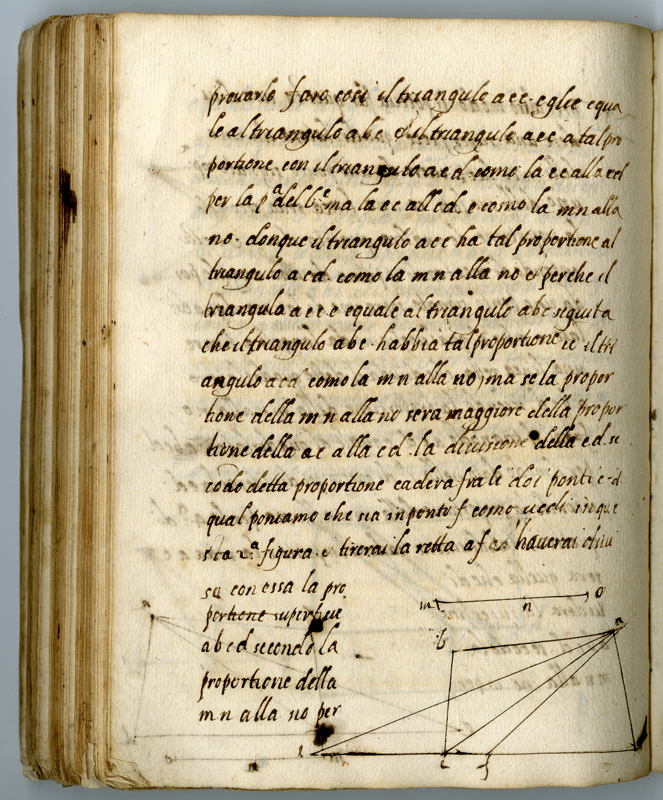 prouarlo faro cosi il triangulo aec. eglie equa
le al triangulo abc & il triangulo aec a tal pro
portione con il triangulo acd. como la ec alla cd
per la pª del 6º ma la ec all cd. e como la mn alla
no. donque il triangulo aec ha tal proportione al
triangulo acd. como la mn alla no e perche il
triangulo aec e equale al triangulo abc seguita
che il triangulo abc. habbia tal proportione il tri
angulo acd como la mn alla no, ma se la propor
tione della mn alla no sera maggiore della propor
tione della ec alla cd. la diuisione della cd. se
codo detta proportione cadera fra li doi ponti c. d
qual poniamo che sia in ponto f como uedi in que
sta 2ª figura. e tirerai la retta af & hauerai diui
sa con essa la pro
portione superficie
abcd secondo la
proportione della
mn alla no per
m n o
b a
e c f